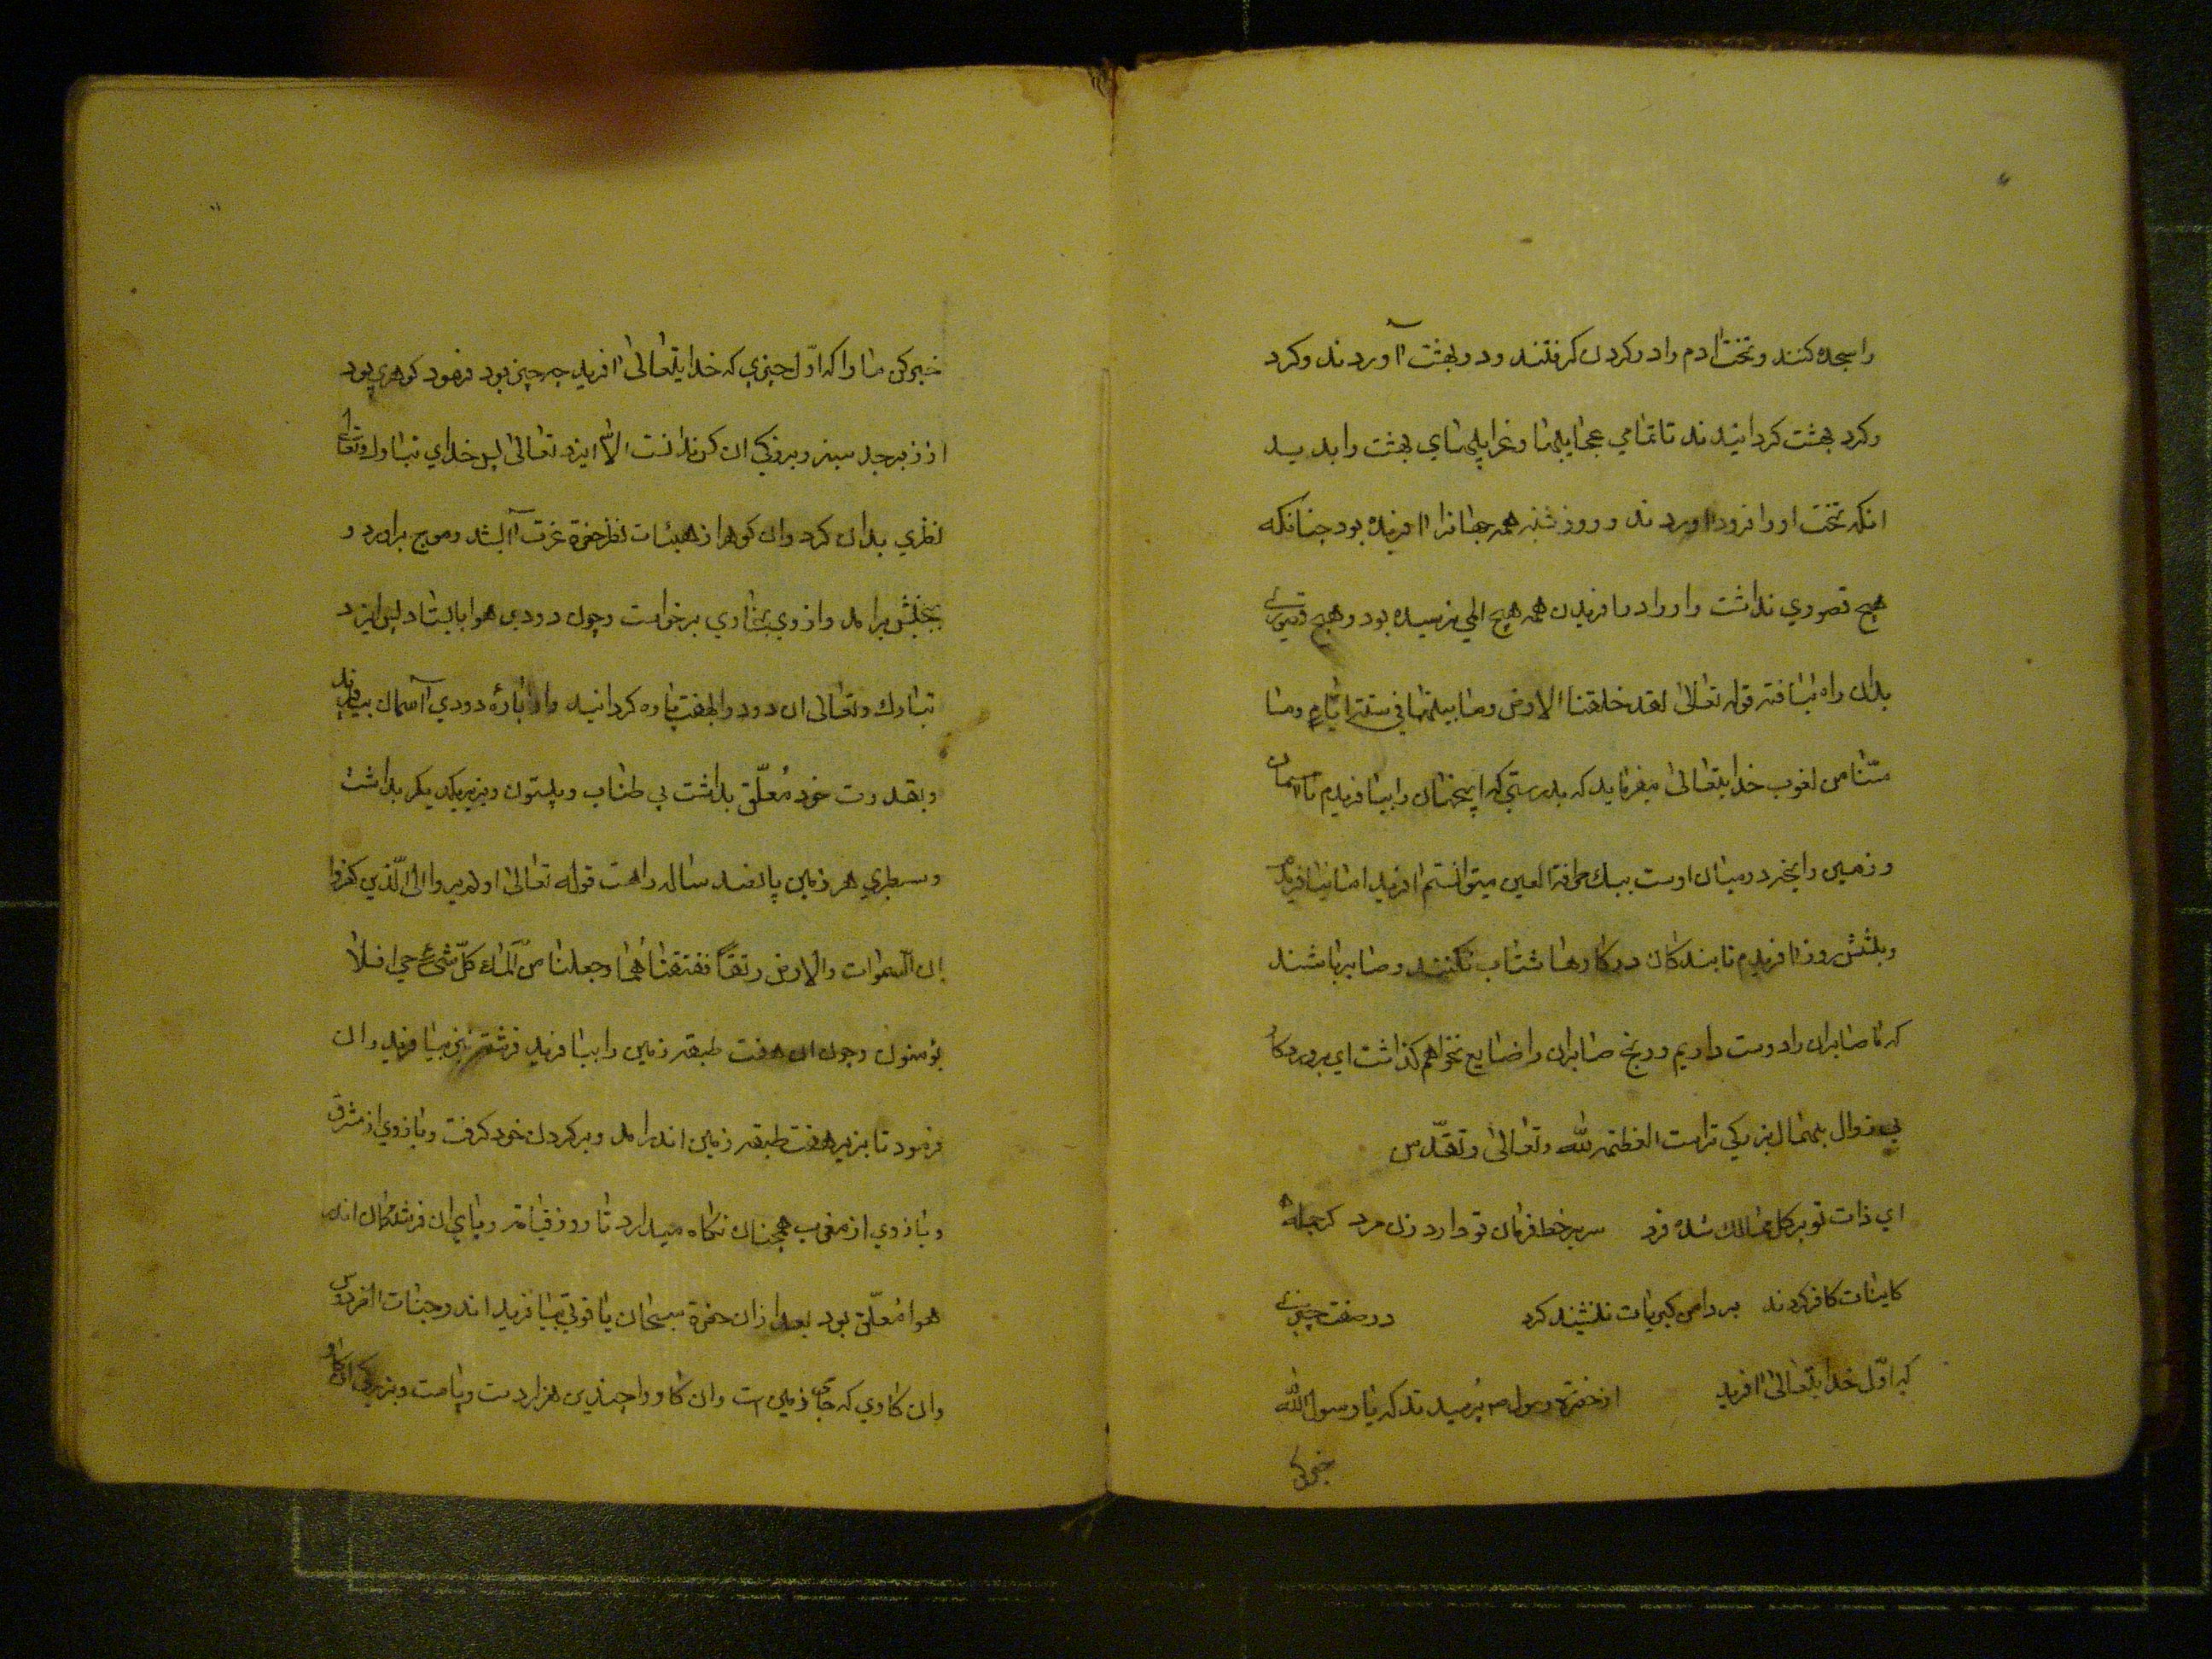 را سجده کنند و تخت ادم را در کردن کرفتند و در بهشت آوردند و کرد
و کرد بهشت کردانیدند تا تمامي عجایبها و غرایبهاي بهشت را بدید
انکه تخت او را فرود اوردند و روز شنبه همه جهانرا افریده بود چنانکه
هیچ قصوري نداشت و او را در افریدن همه هیچ المي نرسیده بود و هیچ
بدان راه نیافته قوله تعالی لقد خلقنا الارض وما بینهما في ستة ایام وما
مسنا من لغوب خدایتعالی میفرماید که بدرستي که اینجهان را بیافریدم تا اسمان
و زمین و انچه در میان اوست بیک طرفة العین میتوانستم افرید اما نیافریدم
و بشش روز افریدم تا بندکان در کارها شتاب نکنند و صابر باشند
که ما صابران را دوست داریم و رنج صابران را ضایع نخواهم کذاشت اي پروردکار
بي زوال بیهمال بزرکي تراست العظمة لله وتعالی وتقدس
اي ذات تو بر کل ممالک شده فرد سر بر خط فرمان تو دارد زن مرد کر جمله
کاینات کافر کردند بر دامن کبریات ننشیند کرد در صفت چیزي
که اول خدایتعالی افرید از حضرة رسول ص پرسیدند که یا رسول الله
خبر کن
خبر کن ما را که اول چیزي که خدایتعالی افرید چه چیز بود فرمود کوهري بود
از زبرجد سبز و بزرکي ان کس ندانست الا ایزد تعالی پس خداي تبارک وتعالی
نظري بدان کرد وان کوهر از هیئات نظر حضرة عزت آب شد و موج براورد و
بجنبش برامد و از وي بخاري برخاست و چون دودي هوا بایستاد پس ایزد
تبارک وتعالی ان دود را بهفت پاره کردانید و از پارهٔ دودي آسمان بیافرید
و بقدرت خود معلّق بداشت بي طناب و بیستون و بزیر یکدیکر بداشت
و سطبري هر زمین پانصد ساله راهست قوله تعالی اولم یر والی الّذین کفروا
ان السموات والارض رتقاً ففتقناهما وجعلنا من المآء کلّ شیٔ حي افلا
یؤمنون و چون ان هفت طبقه زمین را بیافرید فرشتهٔ نیز بیافرید و ان
فرمود تا بزیر هفت طبقه زمین اندرامد و بر کردن خود کرفت و بازوي از مشرق
و بازوي از مغرب همچنان نکاه میدارد تا روز قیامة و پاي ان فرشتکان اندر
هوا معلّق بود بعد از ان حضرة سبحان یاقوتي بیافرید اند و جنات الفردوس
وان کاوي که جاي زمین است وان کاو را چندین هزار دست و پاست و بزرکي ان کاو